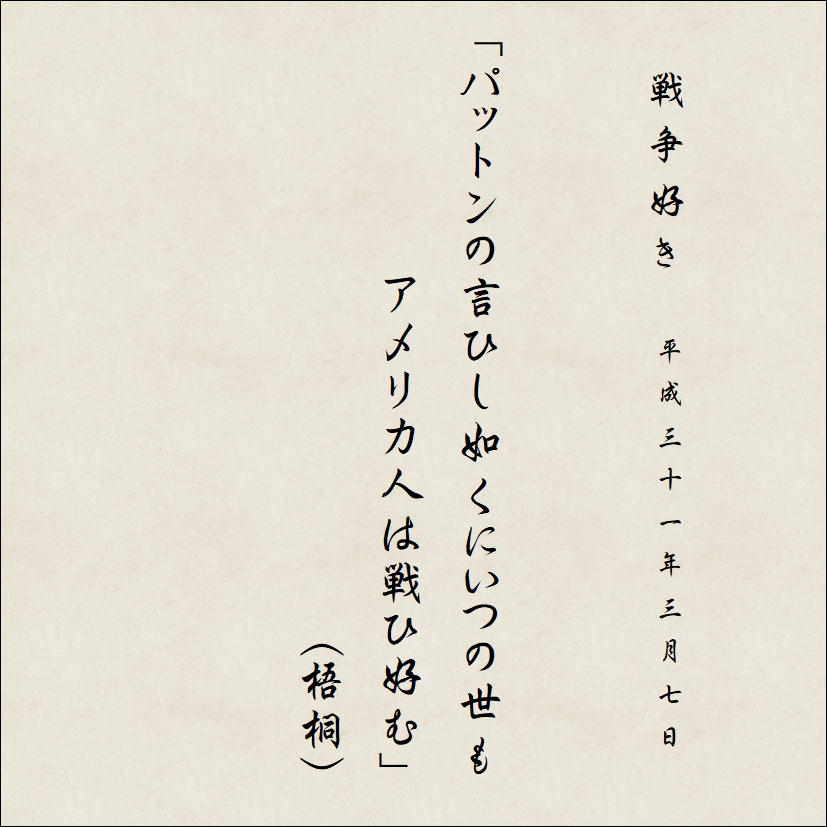 戦争好き 平成三十一年三月七日
「パットンの言ひし如くにいつの世も
アメリカ人は戦ひ好む」
（梧桐）